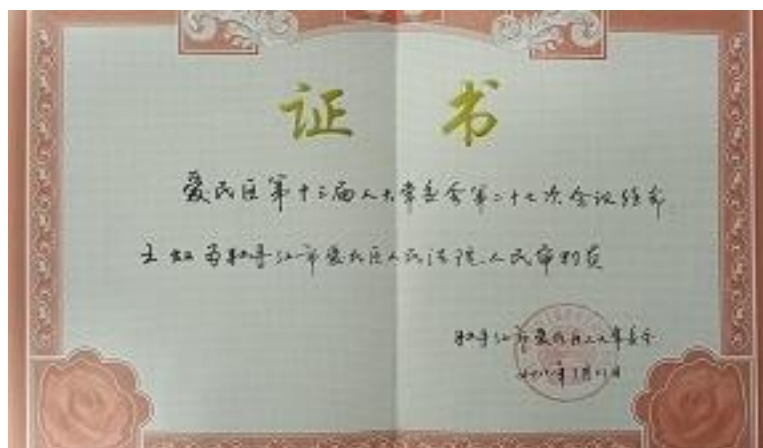 证书
爱民区第十三届人大常委会第二十七次会议任命
王虹为牡丹江市爱民区人民法院人民审判员
牡丹江市爱民区人大常委会
年 月 日